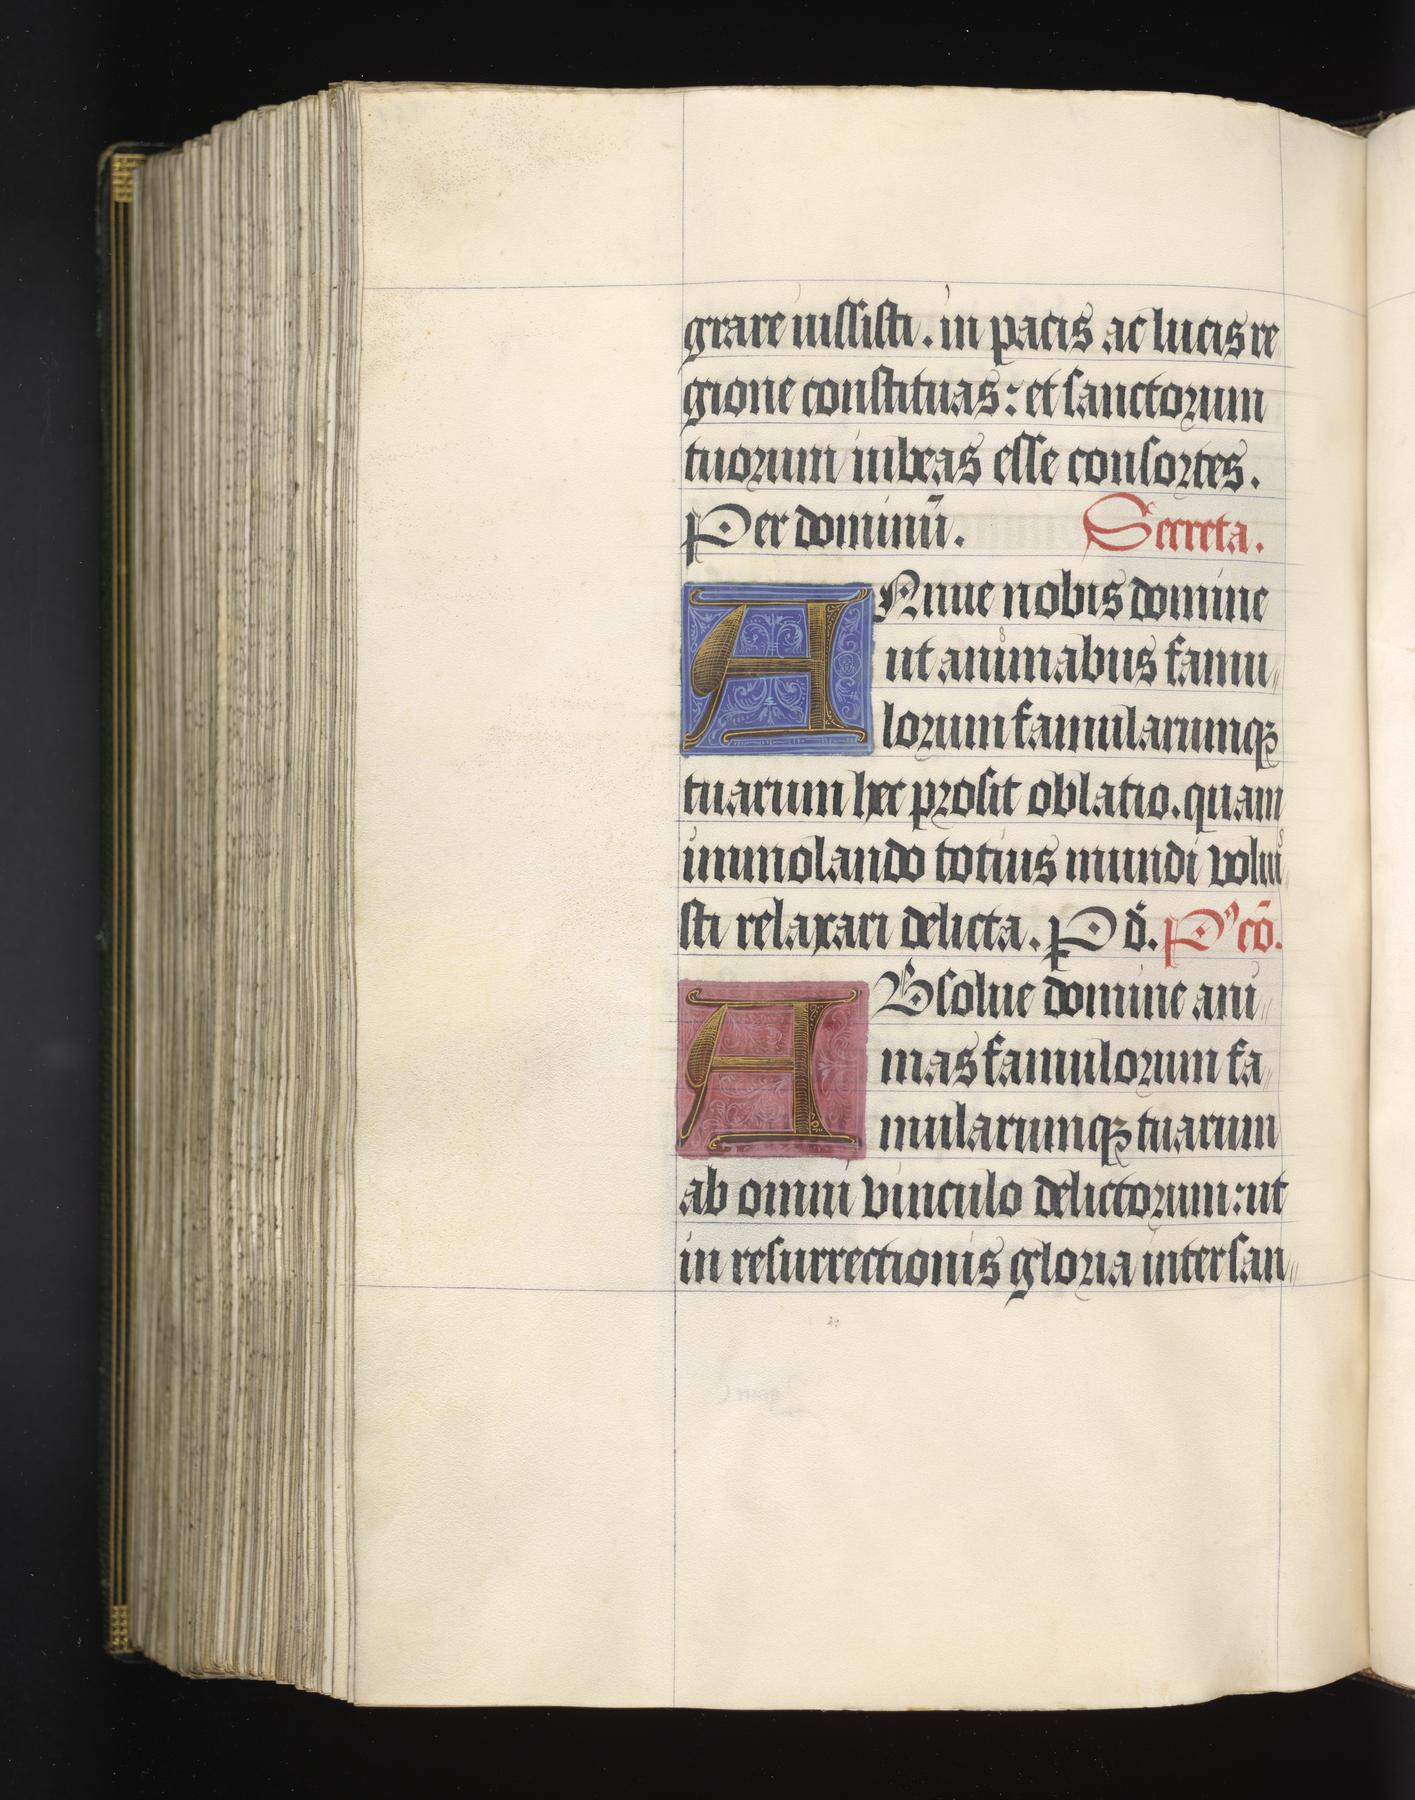 grare iussisti. in pacis ac lucis re
gione constituas: et sanctorum
tuorum iubeas esse consortes.
Per dominū. Secreta.
ANnue nobis domine
ut animabus famu
lorum famularumqꝫ
tuarum hec prosit oblatio. quam
immolando totius mundi volui
sti relaxari delicta. P d̄. Pꝰcō.
ABsolue domine ani
mas famulorum fa
mularumqꝫ tuarum
ab omni vinculo delictorum: ut
in resurrectionis gloria inter san